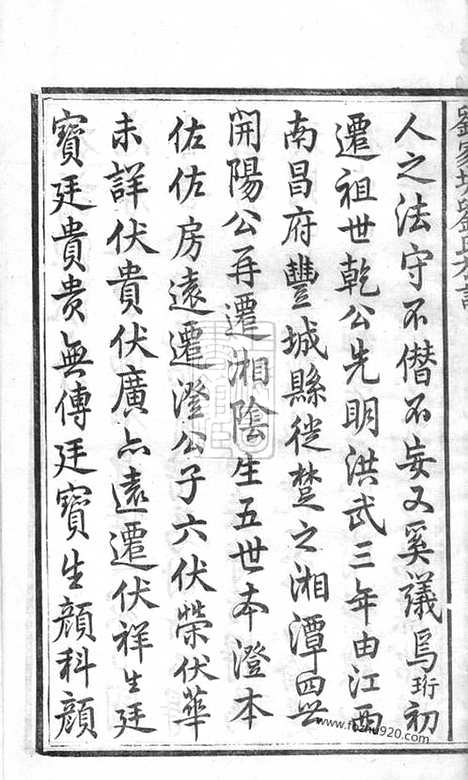 人之法守不僭不妄又奚議焉珩初
遷祖世乾公先明洪武三年由江西
南昌府豐城縣徙楚之湘潭四世
開陽公再遷湘陰生五世本澄本
佑佑房遠遷澄公子六伏榮伏華
未詳伏貴伏廣亦遠遷伏祥生廷
寶廷貴貴無傳廷寶生顏科顏
www.fozhu920.com